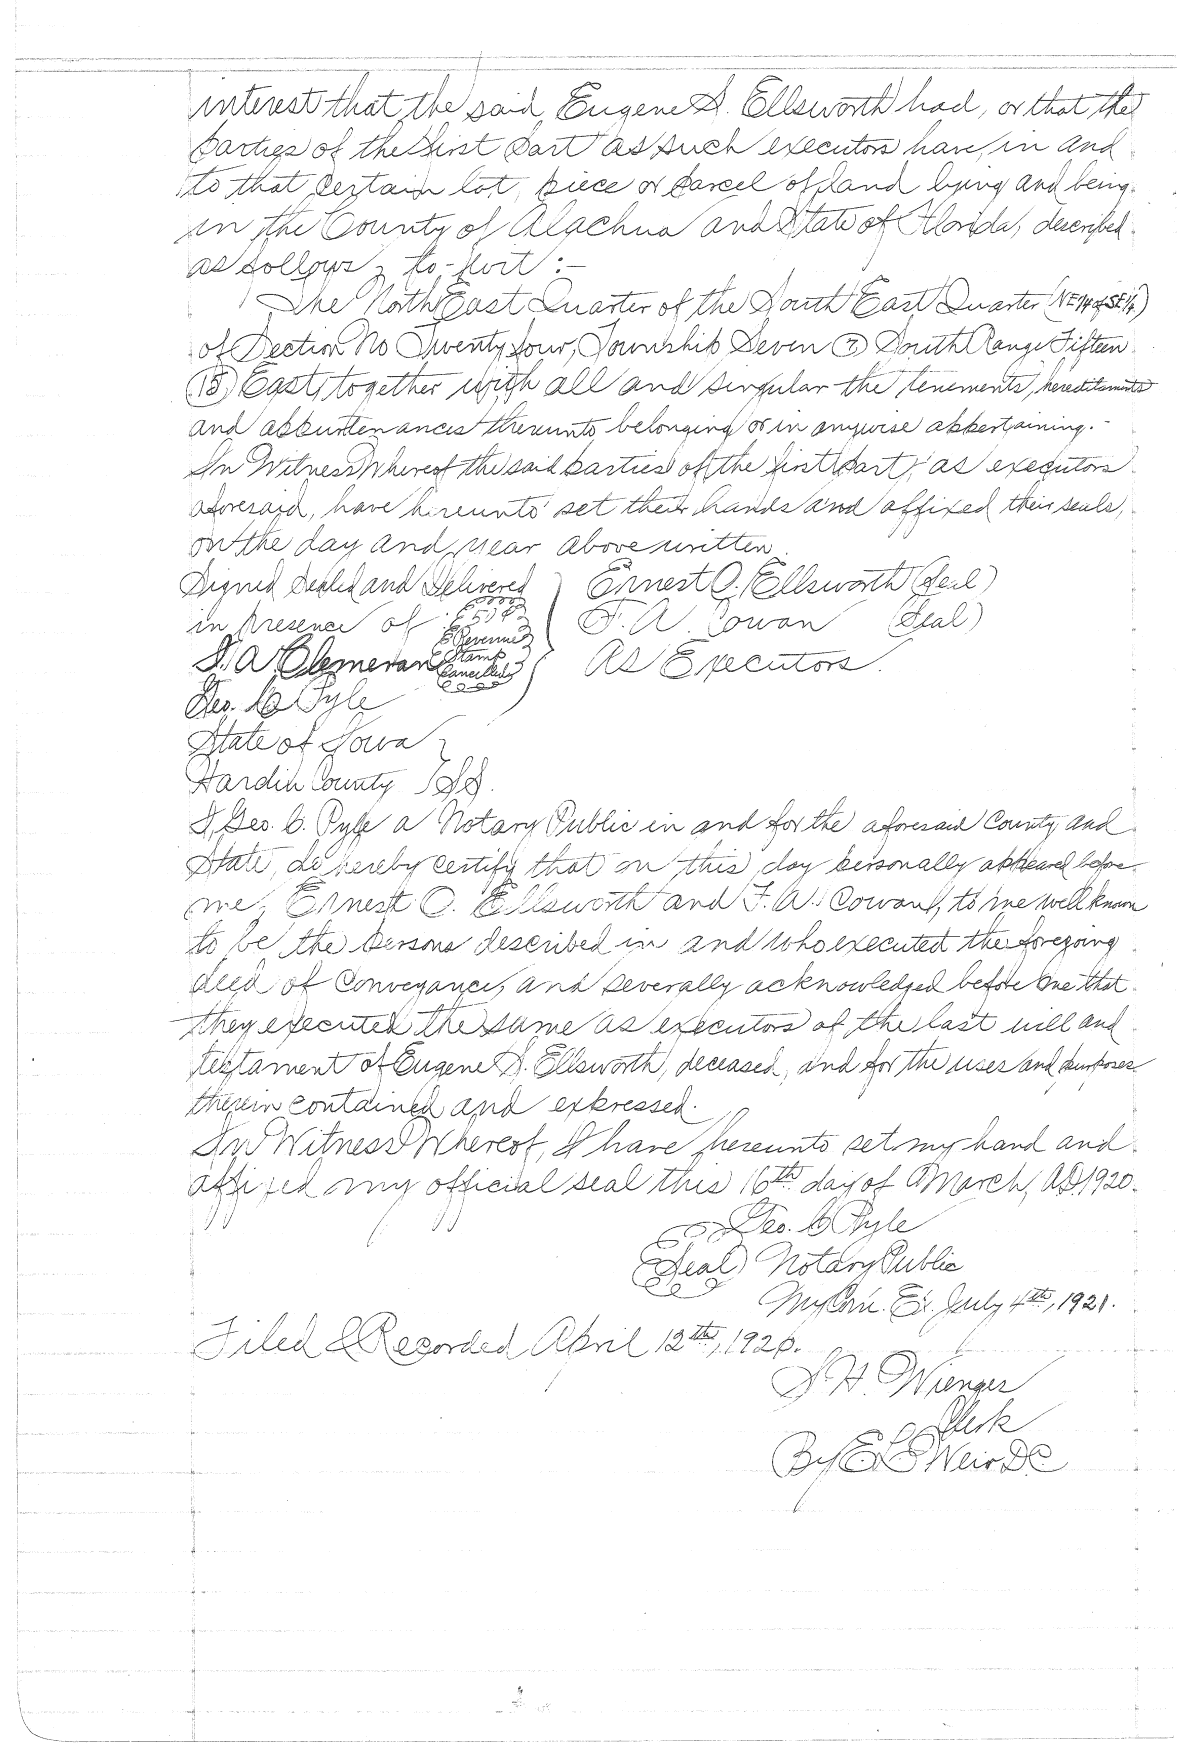 interest that the said Eugene S. Ellsworth had, or that the
parties of the first part as such executors have, in and
to that certain lot, piece or parcel of land lying and being
in the County of Alachua and State of Florida, described
as follows, to-wit :-
The North East Quarter of the South East Quarter (NE 1/4 of SE 1/4)
of Section No Twenty four, Township Seven (7) South Range Fifteen
(15) East, together with all and singular the tenements, hereditaments
and appurtenances thereunto belonging or in anywise appertaining.-
In Witness Whereof the said parties of the first part, as executors
aforesaid, have hereunto set their hands and affixed their seals,
on the day and year above written.
Signed Sealed and Delivered } Ernest O. Ellsworth (Seal)
in presence of 50¢ F. A. Cowan (Seal)
Revenue
Stamp
Cancelled
As Executors.
Geo. C Pyle
State of Iowa }
Hardin County } SS.
I, Geo. C. Pyle a Notary Public in and for the aforesaid County and
State, do hereby certify that on this day personally appeared before
me, Ernest O. Ellsworth and F. A. Cowan, to me well known
to be the persons described in and who executed the foregoing
deed of Conveyance, and severally acknowledged before me that
they executed the same as executors of the last will and
testament of Eugene S. Ellsworth, deceased, and for the uses and purposes
therein contained and expressed.
In Witness Whereof, I have hereunto set my hand and
affixed my official seal this 16th day of March, A.D. 1920.
Geo. C Pyle
(Seal) Notary Public
My Com. Ex. July 4th, 1921.
Filed & Recorded April 12th, 1920.
S. H. Wienges
Clerk
By Weir DC